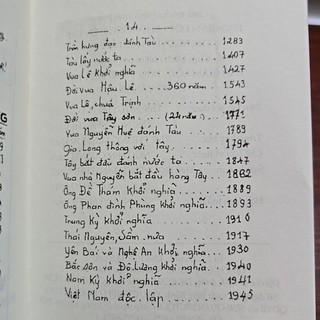 14
Trần hưng đạo đánh Tàu ........ 1283
Tàu lấy nước ta ........ 1407
Vua Lê Khởi nghĩa ........ 1427
Đời vua Hậu Lê ..... 360 năm ... 1543
Vua Lê, chuá Trịnh ........ 1545
Đời vua Tây sơn ..... (24 năm) 1771
Vua Nguyễn Huệ đánh Tàu ..... 1789
Gia Long thông với tây ..... 1794
Tây bắt đầu đánh nước ta ..... 1847
Vua nhà Nguyễn bắt đầu hàng Tây ... 1862
Ông Đề Thám Khởi nghĩa ..... 1889
Ông Phan đình Phùng Khởi nghĩa ... 1893
Trung Kỳ Khởi nghĩa ........ 1916
Thái Nguyên, Sầm nứa ..... 1917
Yên Bái và Nghệ An Khởi nghĩa .. 1930
Bắc sơn và Đô Lương Khởi nghĩa .. 1940
Nam Kỳ Khởi nghĩa ........ 1941
Việt Nam độc lập ........ 1945